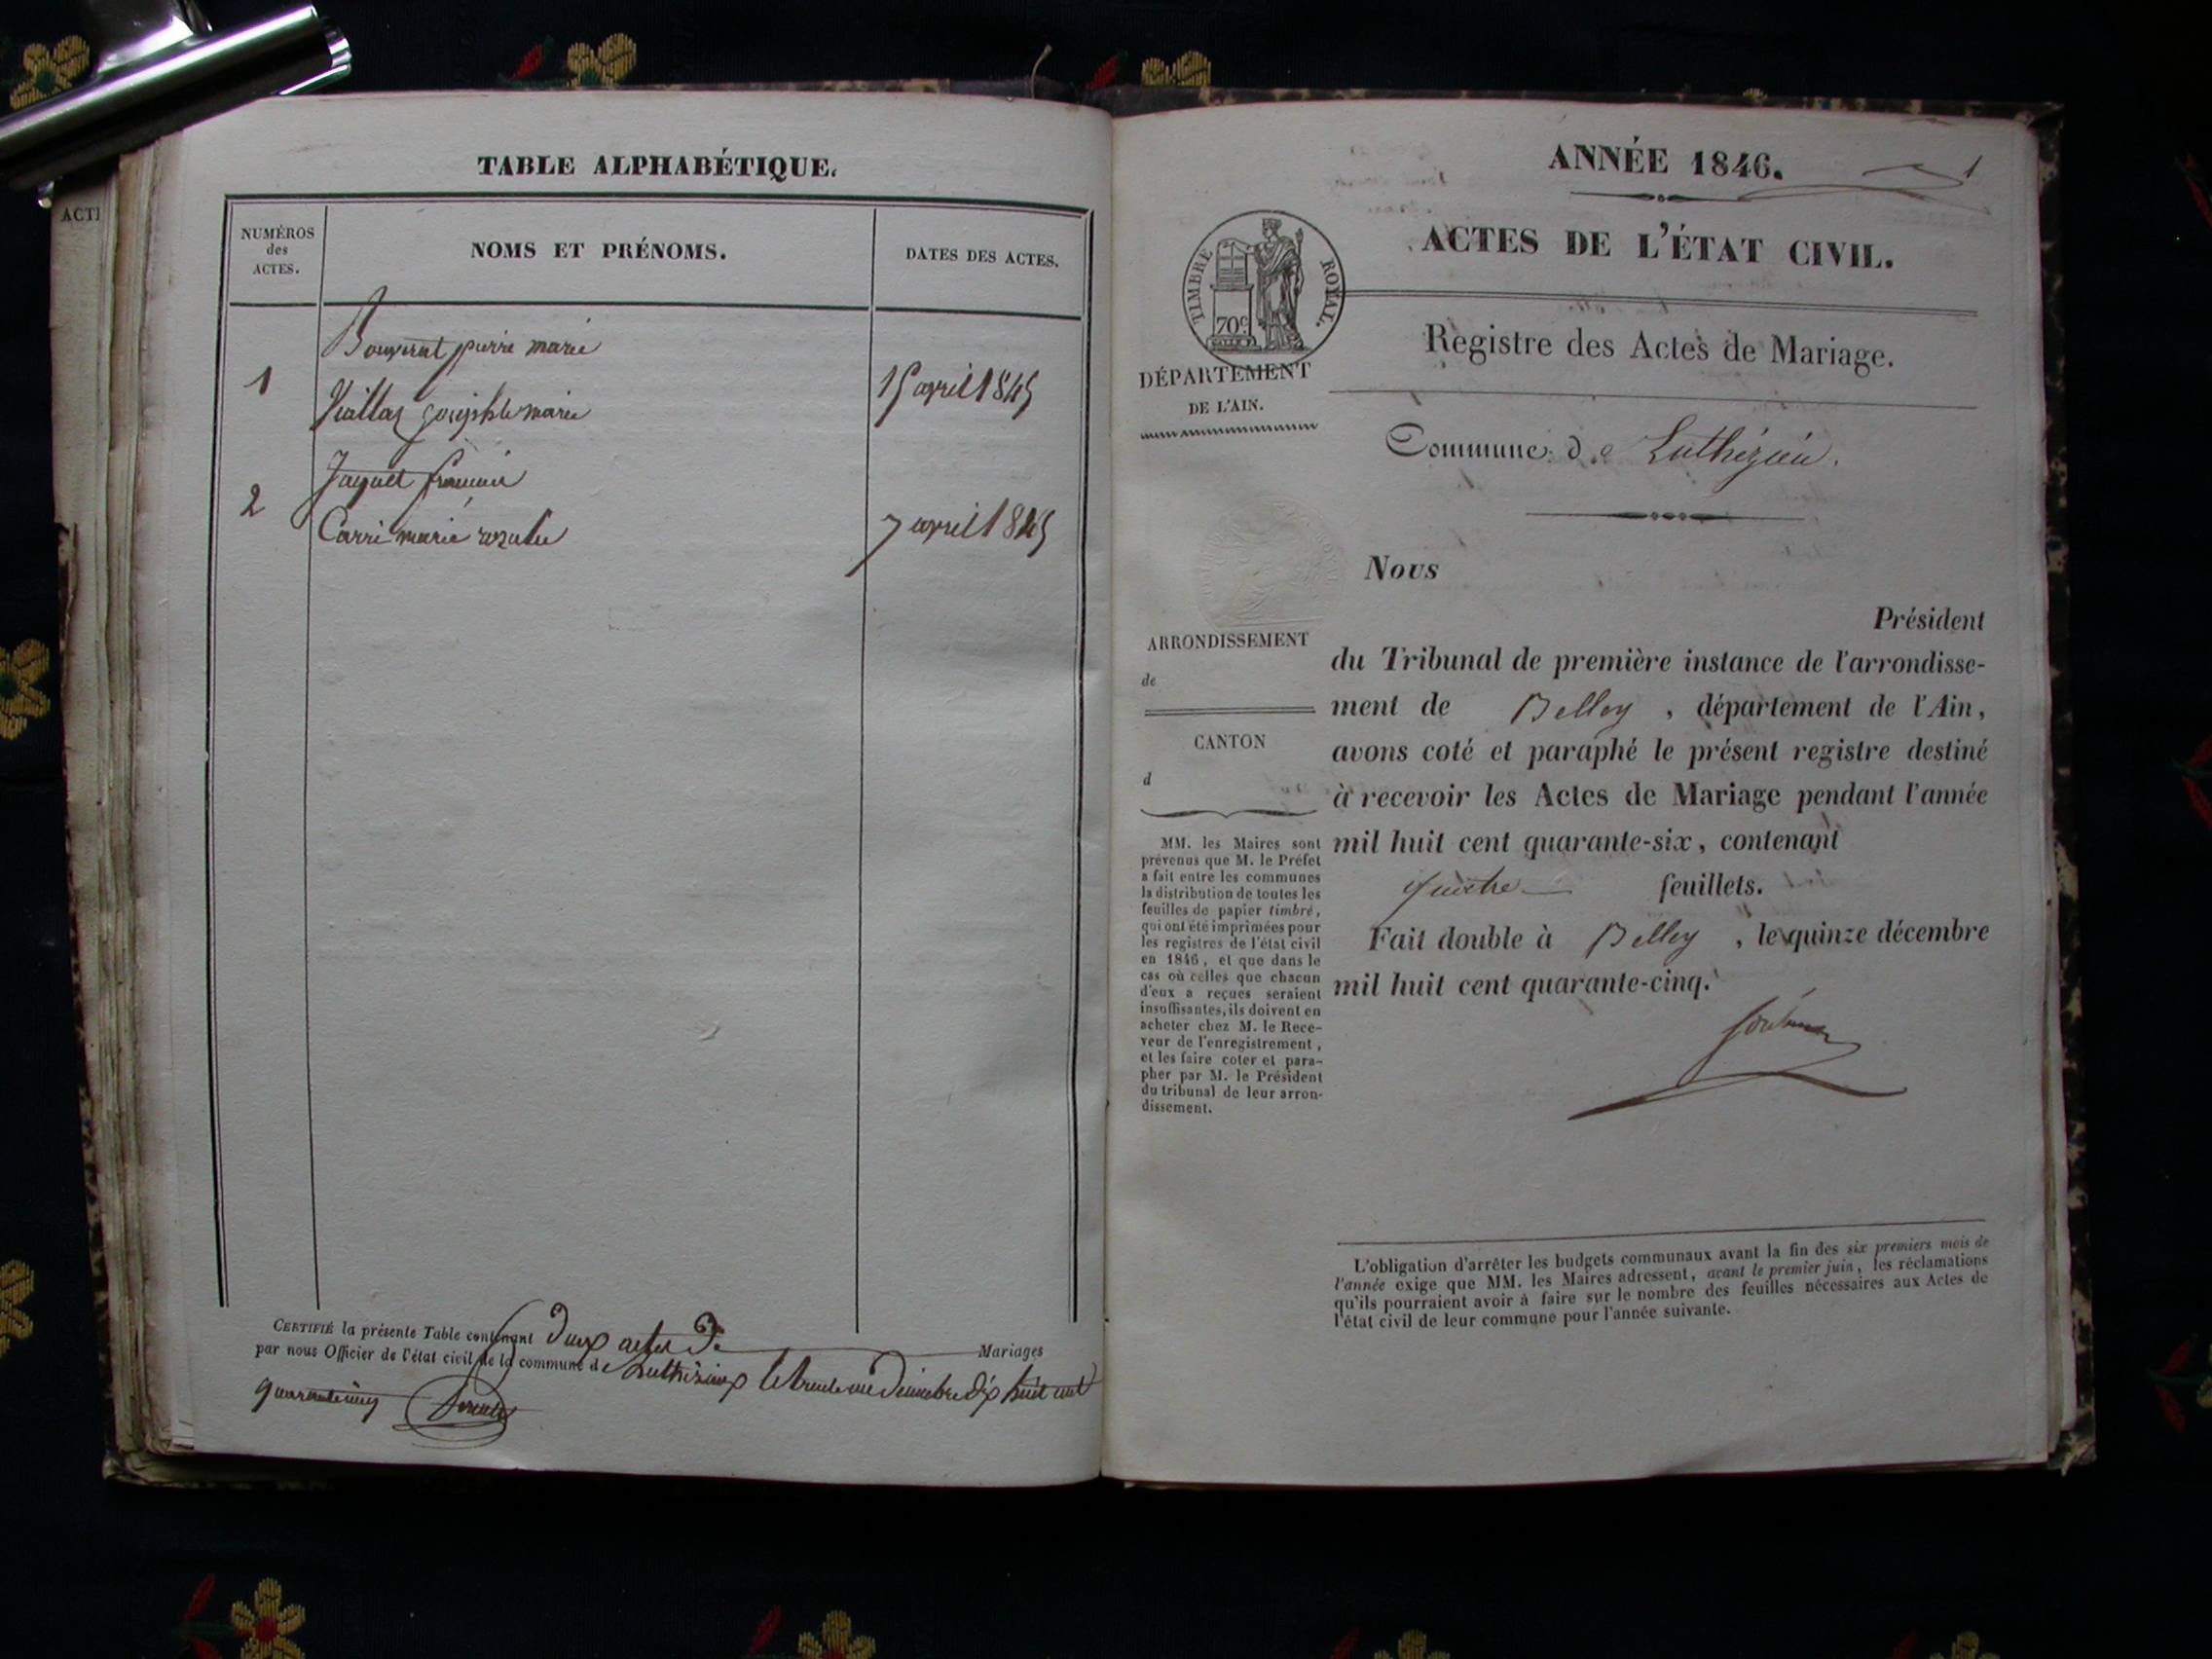 ACTI
TABLE ALPHABÉTIQUE.
NUMÉROS
des
ACTES.
NOMS ET PRÉNOMS.
DATES DES ACTES.
Bouvrat pierre marie
1
15 avril 1845
josephte marie
Jaquet
2
Carri marie rosalie
7 avril 1845
CERTIFIÉ la présente Table contenant deux actes de Mariages
par nous Officier de l'état civil de la commune de Luthézieux le trente un décembre dix huit cent
quarante cinq
ANNÉE 1846.
1
ACTES DE L'ÉTAT CIVIL.
TIMBRE ROYAL.
70c
Registre des Actes de Mariage.
DÉPARTEMENT
DE L'AIN.
Commune de Luthézieu.
Nous
Président
ARRONDISSEMENT
de
CANTON
d
du Tribunal de première instance de l'arrondisse-
ment de Belley, département de l'Ain,
avons coté et paraphé le présent registre destiné
à recevoir les Actes de Mariage pendant l'année
mil huit cent quarante-six, contenant
quatre feuillets.
Fait double à Belley, le quinze décembre
mil huit cent quarante-cinq.
MM. les Maires sont
prévenus que M. le Préfet
a fait entre les communes
la distribution de toutes les
feuilles de papier timbré,
qui ont été imprimées pour
les registres de l'état civil
en 1846, et que dans le
cas où celles que chacun
d'eux a reçues seraient
insuffisantes, ils doivent en
acheter chez M. le Rece-
veur de l'enregistrement,
et les faire coter et para-
pher par M. le Président
du tribunal de leur arron-
dissement.
L'obligation d'arrêter les budgets communaux avant la fin des six premiers mois de
l'année exige que MM. les Maires adressent, avant le premier juin, les réclamations
qu'ils pourraient avoir à faire sur le nombre des feuilles nécessaires aux Actes de
l'état civil de leur commune pour l'année suivante.